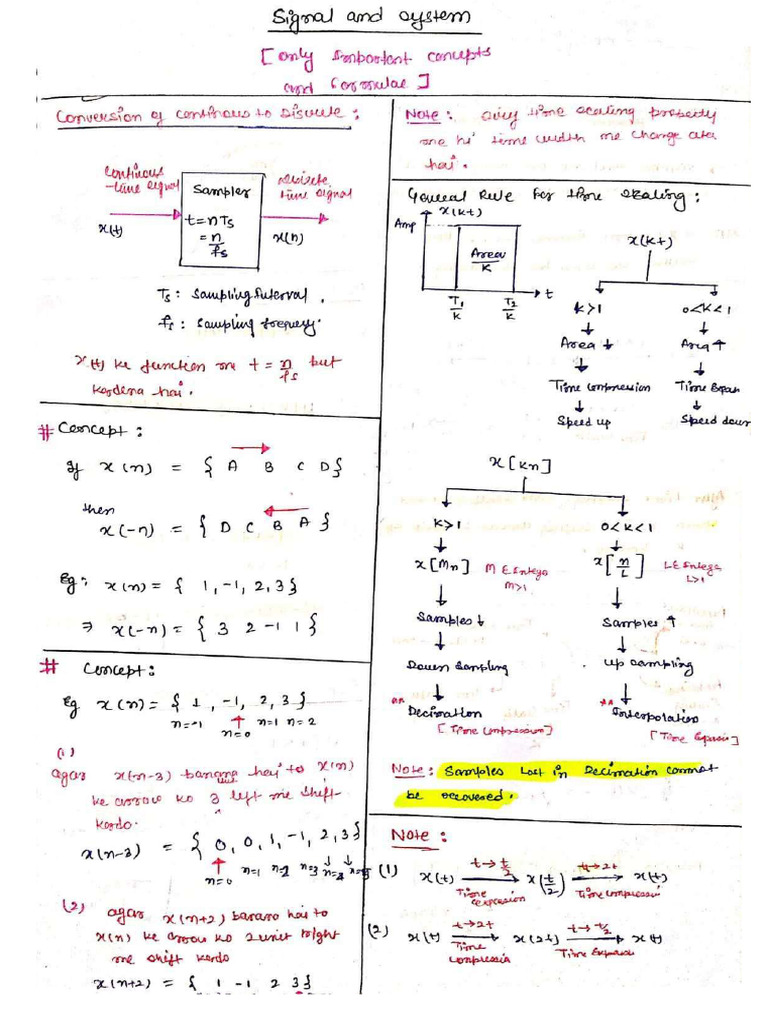 Signal and System
[ Only Important Concepts
and Formulae ]
Conversion of Continous to Discrete :
Continous
-time signal
x(t)
Sampler
t = nTs
= n/fs
Discrete
time signal
x(n)
Ts : Sampling Interval .
fs : Sampling frequency.
x(t) ke function me t = n/fs put
kardena hai .
# Concept :
If x(n) = { A B C D }
then
x(-n) = { D C B A }
Eg: x(n) = { 1, -1, 2, 3 }
⇒ x(-n) = { 3 2 -1 1 }
# Concept :
Eg x(n) = { 1, -1, 2, 3 }
n=-1 ↑ n=1 n=2
n=0
(1)
agar x(n-3) banana hai to x(n)
ke arrow ko 3 left me shift
kardo.
x(n-3) = { 0, 0, 1, -1, 2, 3 }
↑ n=1 n=2 n=3 n=4 n=5
n=0
(2) agar x(n+2) banana hai to
x(n) ke arrow ko 2 unit right
me shift kardo
x(n+2) = { 1 -1 2 3 }
Note : Only time scaling property
me hi time width me change ata
hai .
General Rule for time scaling :
x(kt)
Amp
Area/K
T1/K T2/K t
x(kt)
k>1 0<k<1
Area ↓ Area ↑
Time Compression Time Expan
Speed up Speed down
x[kn]
k>1 0<k<1
x[Mn] M E Intege M>1 x[n/L] L E Intege L>1
Samples ↓ Samples ↑
Down Sampling Up sampling
** Decimation ** Interpolation
[ Time Compression ] [ Time Expansio ]
Note : Samples Lost in Decimation cannot
be recovered .
Note :
(1) x(t) t→t/2 Time expression x(t/2) t→2t Time Compressio x(t)
(2) x(t) t→2t Time Compressio x(2t) t→t/2 Time Expansio x(t)